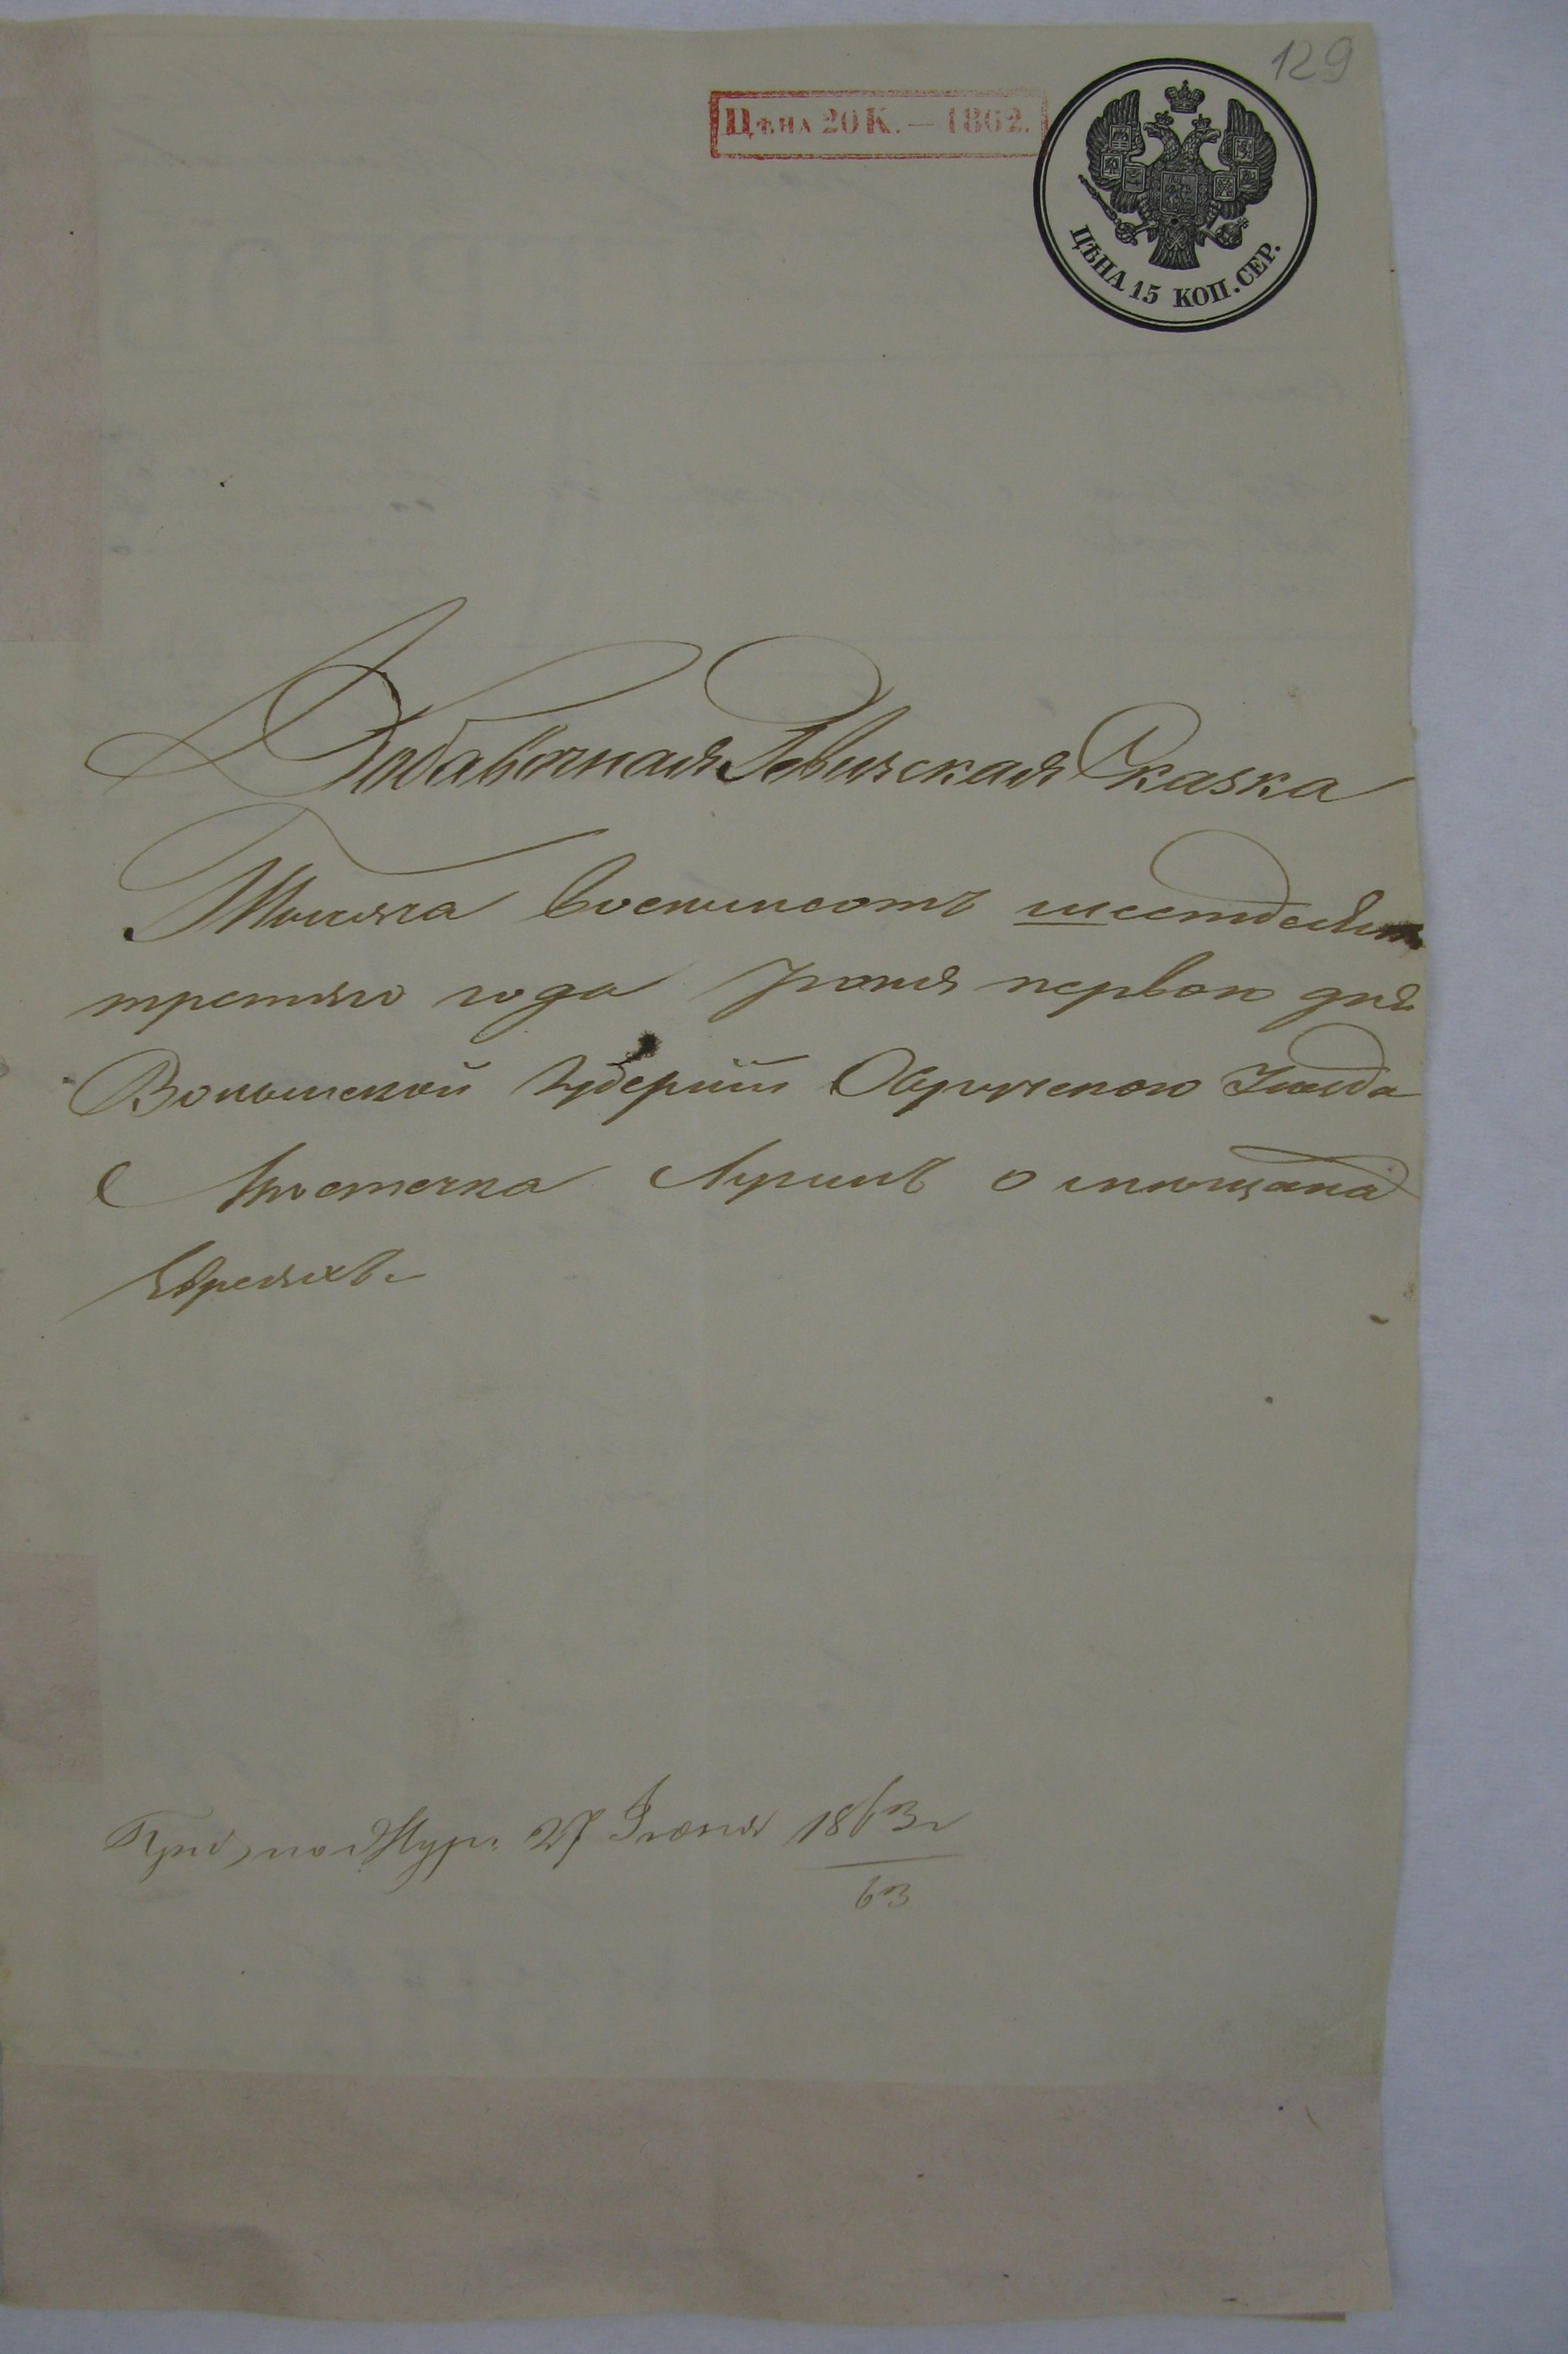 129
Цѣна 20 К. — 1862.
ЦѢНА 15 КОП. СЕР.
Добавочная Ревизская Сказка
Тысяча восемьсотъ шестдесятъ
третяго года Іюня первого дня
Волынской губерніи Овручского Уѣзда
Мѣстечка Лугинъ о мѣщанах
Евреяхъ
27 Іюня 1863 г
63